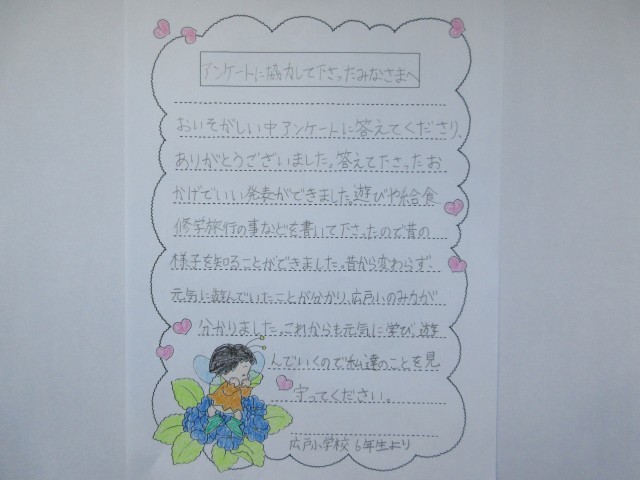 アンケートに協力して下さったみなさまへ
おいそがしい中アンケートに答えてくださり、
ありがとうございました。答えて下さったお
かげでいい発表ができました。遊びや給食
修学旅行の事などを書いて下さったので昔の
様子を知ることができました。昔から変わらず、
元気に遊んでいたことが分かり、広戸小のみ力が
分かりました。これからも元気に学び、遊
んでいくので私達のことを見
守ってください。
広戸小学校 6年生より